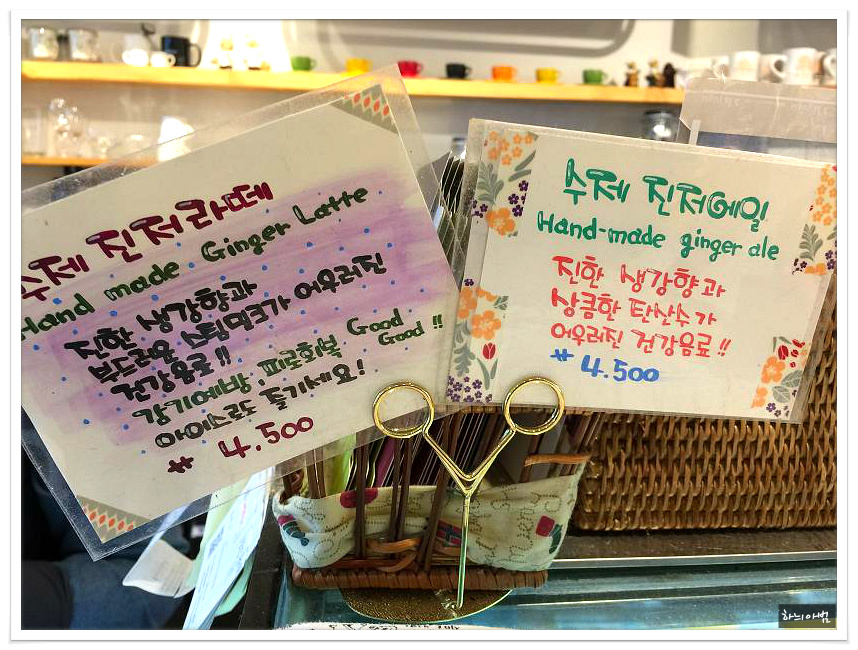 수제 진저라떼
Hand made Ginger Latte
진한 생강향과
부드러운 스팀밀크가 어우러진
건강음료!!
감기예방, 피로회복 Good Good!!
아이스로도 즐기세요!
₩ 4.500
수제 진저에일
Hand-made ginger ale
진한 생강향과
상큼한 탄산수가
어우러진 건강음료!!
₩ 4.500
하늬아범